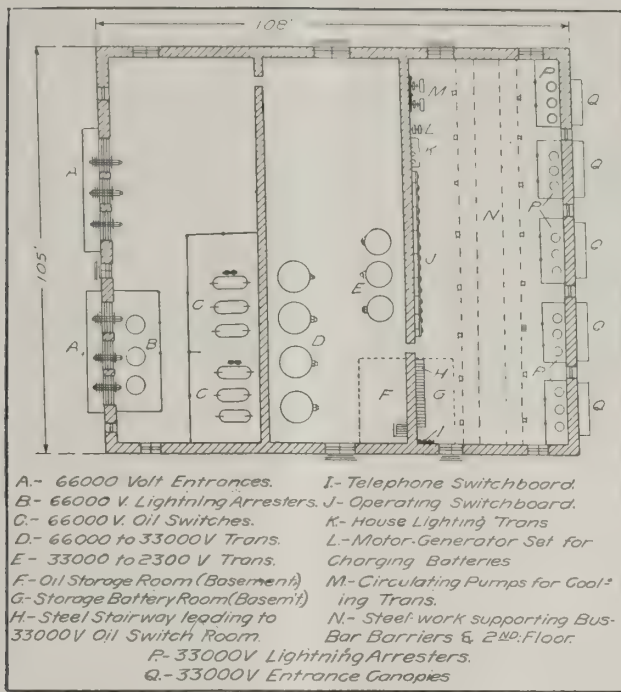 108'
105'
A
A.
B
C
C
D
E
F
G
H
I
J
K
L
M
N
P
P
P
Q
Q
Q
Q
Q
A.- 66000 Volt Entrances.
B- 66000 V. Lightning Arresters.
C.- 66000 V. Oil Switches.
D.- 66000 to 33000 V Trans.
E - 33000 to 2300 V Trans.
F.- Oil Storage Room (Basement)
G.- Storage Battery Room (Basem't)
H.- Steel Stairway leading to
33000 V Oil Switch Room.
I.- Telephone Switchboard.
J- Operating Switchboard.
K.- House Lighting Trans
L.- Motor-Generator Set for
Charging Batteries
M.- Circulating Pumps for Cool-
ing Trans.
N.- Steel work supporting Bus-
Bar Barriers & 2ND. Floor.
P.- 33000 V Lightning Arresters.
Q.- 33000 V Entrance Canopies